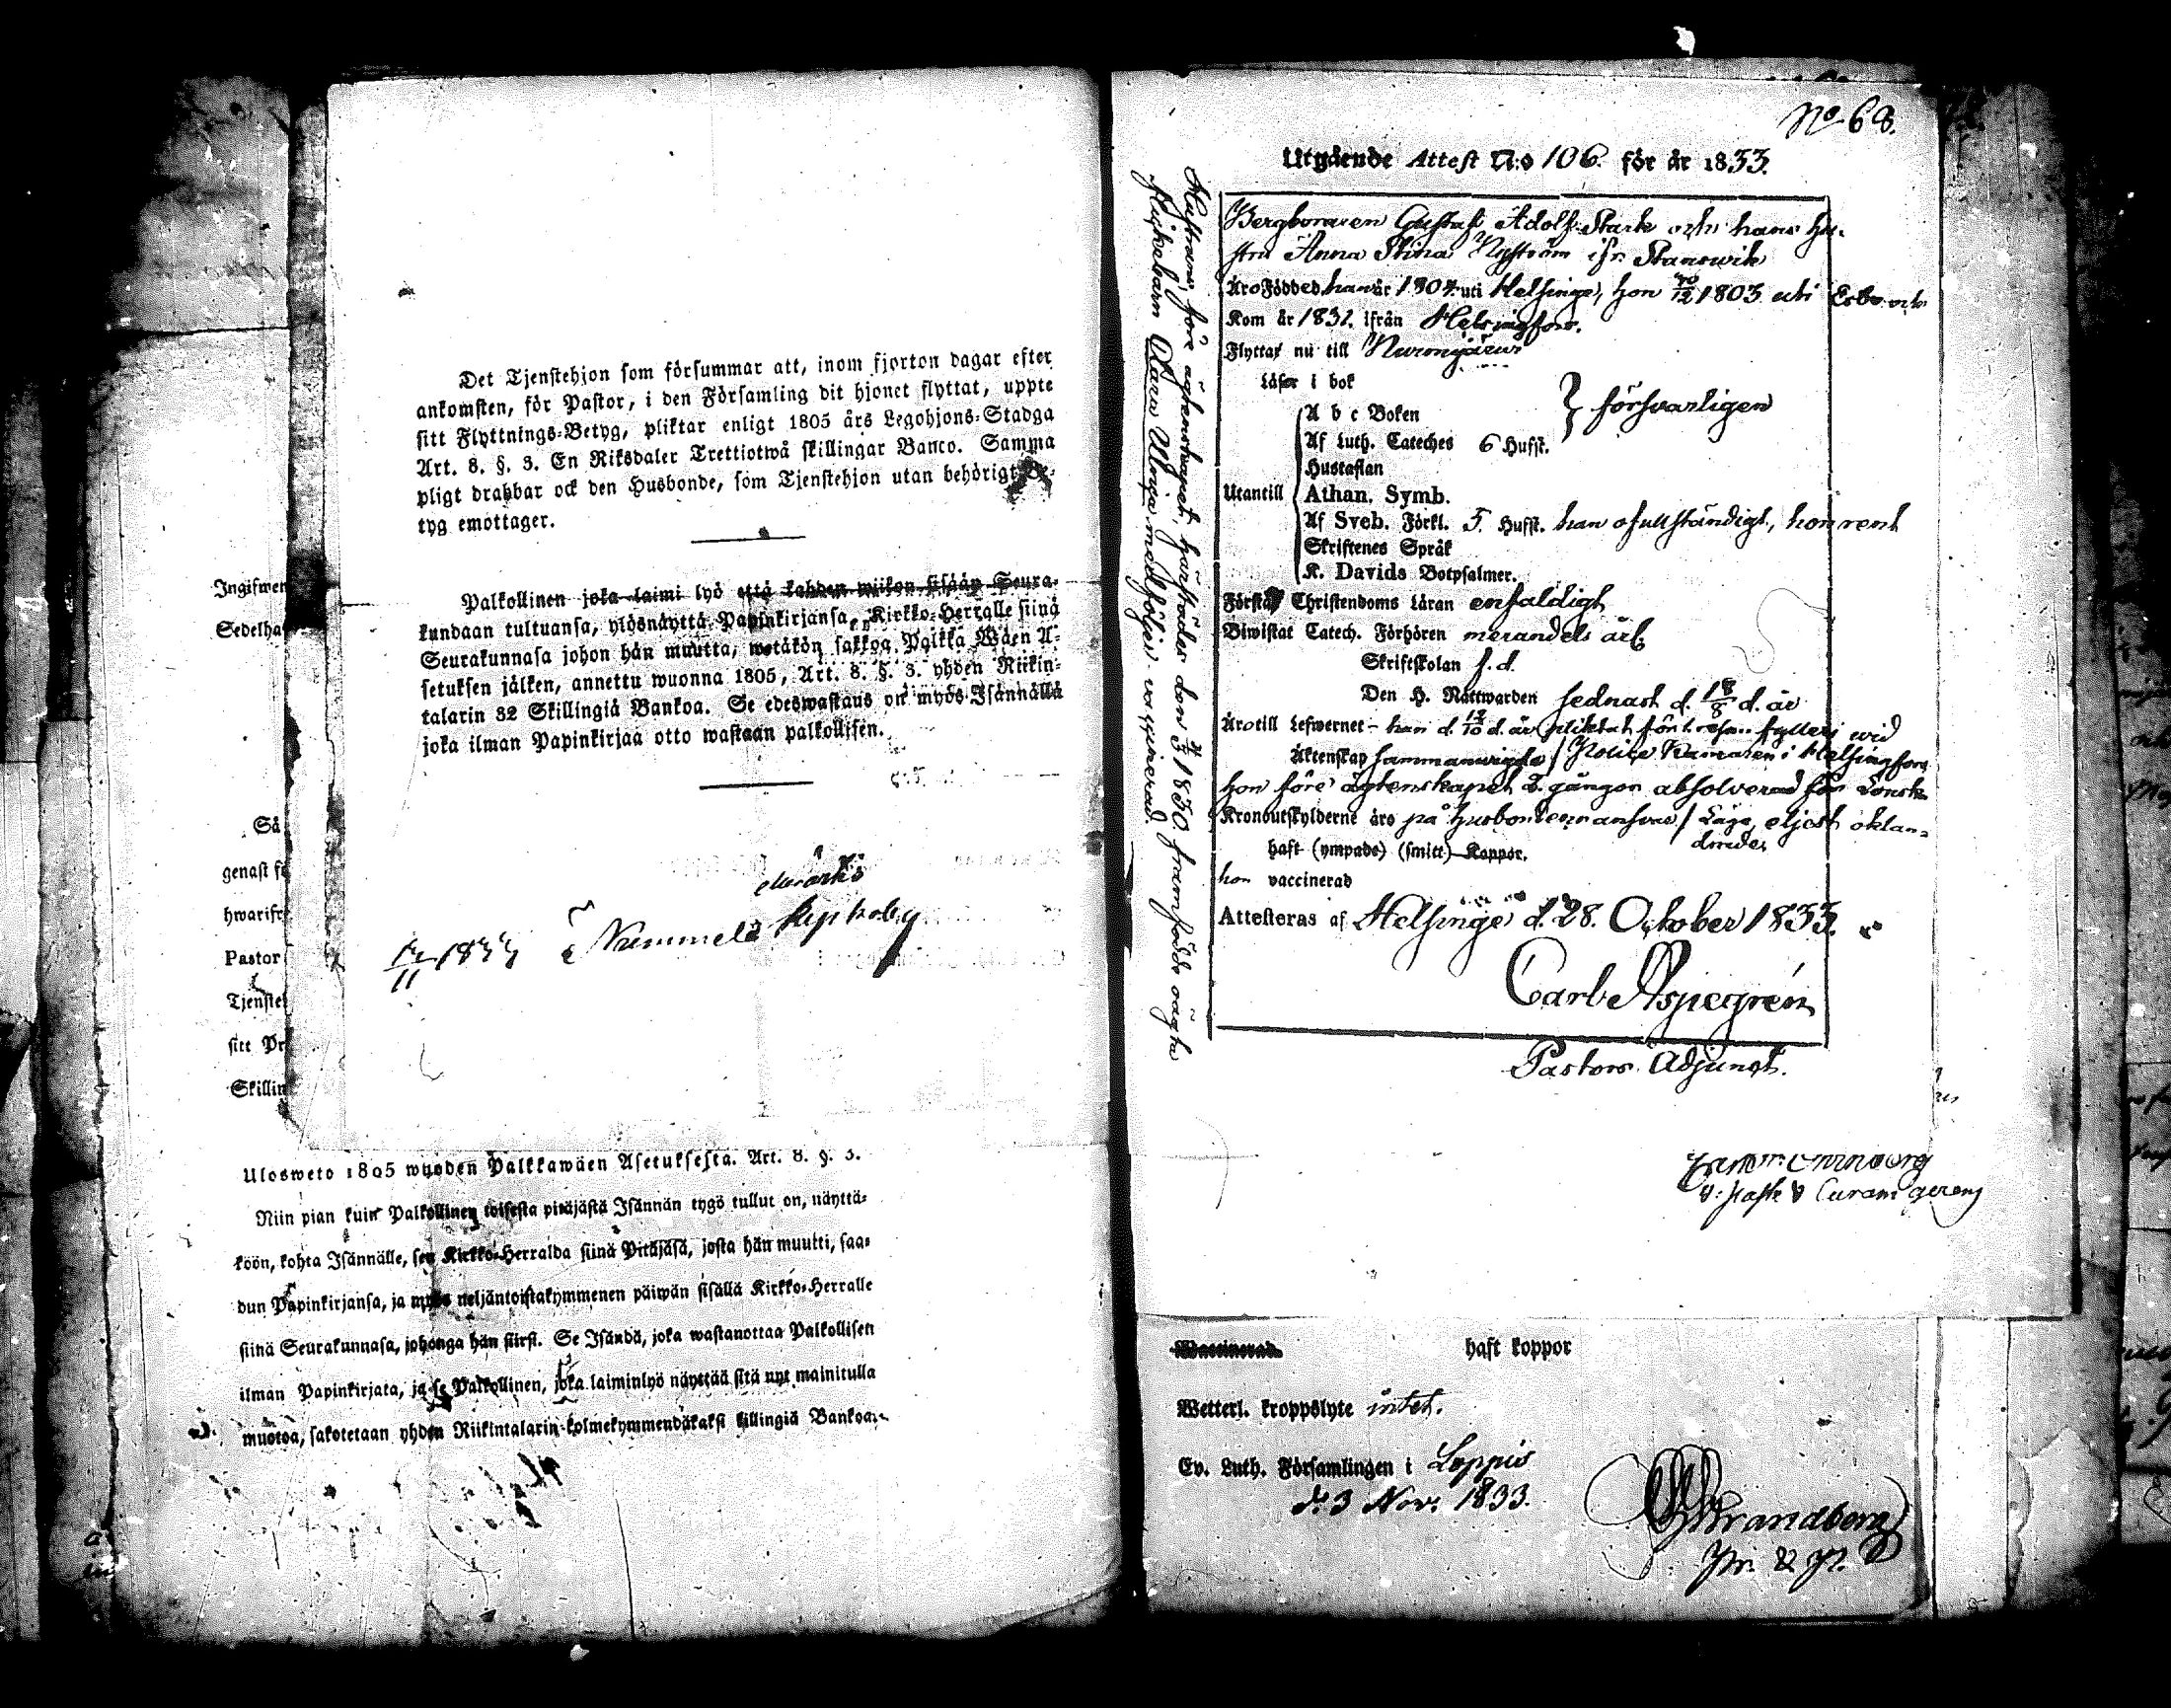 Det Tjenstehjon som försummar att, inom fjorton dagar efter
ankomsten, för Pastor, i den Församling dit hjonet flyttat, uppte
sitt Flyttnings-Betyg, pliktar enligt 1805 års Legohjons-Stadga
Art. 8. §. 3. En Riksdaler Trettiotwå skillingar Banco. Samma
pligt drabbar ock den Husbonde, som Tjenstehjon utan behörigt Be-
tyg emottager.
Palkollinen joka laimi lyö että kahden wiikon sisään Seura-
kundaan tultuansa, ylösnäyttä Papinkirjansa, Kirkko-Herralle siinä
Seurakunnasa johon hän muutta, wetäkön sakkoa Palkka Wäen A-
setuksen jälken, annettu wuonna 1805, Art. 8. §. 3. yhden Riikin-
talarin 32 Skillingiä Bankoa. Se edeswastaus on myös Isännällä
joka ilman Papinkirjaa otto wastaan palkollisen.
Nummela
Ingifwen
Sedelha
Så
genast
hwarifr
Pastor
Tjenste
sitt Pr
Skillin
Ulosweto 1805 wuoden Palkkawäen Asetuksesta. Art. 8. §. 3.
Niin pian kuin Palkollinen toisesta pitäjästä Isännän tygö tullut on, näyttä-
köön, kohta Isännälle, sen Kirkko-Herralda siinä Pitäjäsä, josta hän muutti, saa-
dun Papinkirjansa, ja myös neljäntoistakymmenen päiwän sisällä Kirkko-Herralle
siinä Seurakunnasa, johonga hän siirsi. Se Isändä, joka wastanottaa Palkollisen
ilman Papinkirjata, ja se Palkollinen, joka laiminlyö näyttää sitä nyt mainitulla
muotoa, sakotetaan yhden Riikintalarin kolmekymmendäkaksi killingiä Bankoa.
No 68.
Utgående Attest N:o 106. för år 1833.
Bergboraren Gustaf Adolf Stark och hans hu-
stru Anna Stina Nyström ifr. Stanswik
Äro Födde han år 1804 uti Helsinge, hon 1803 uti Esbo och
Kom år 1831. ifrån Helsingfors.
Flyttar nu till Nurmijärvi
Läser i bok
A b c Boken
försvarligen
Af Luth. Cateches 6 Hufst.
Hustaflan
Utantill
Athan. Symb.
Af Sveb. Förkl. 5. Hufst. han ofullständigt, hon rent
Skriftenes Språk
K. Davids Botpsalmer.
Förstår Christendoms Läran enfaldigt
Biwistat Catech. Förhören
Skriftskolan f. d.
Den H. Nattwarden sednast d. 18/8 d. år
Äro till Lefwernet - han d. d. år pliktat för fylleri wid
Äktenskap sammanwigde / Police Kamaren i Helsingfors
hon före ägtenskapet 2. gångor absolverad för Lönsk-
Kronoutskylderne äro på husbondenn ansvar / Läge, eljest oklan-
drade.
haft (ympade) (smitt) Koppor.
hon vaccinerad
Attesteras af Helsinge d. 28. October 1833.
Carl Aspegrén
Pastors Adjunct.
Hustruns före ägtenskapet, härstädes den 1830. framfödde oägta
flickebarn Clara Ulrica medföljer. vaccinerad.
Vaccinerad
haft koppor
Wetterl. kroppslyte intet.
Ev. Luth. Församlingen i Loppis
d. 3 Nov. 1833.
Strandberg